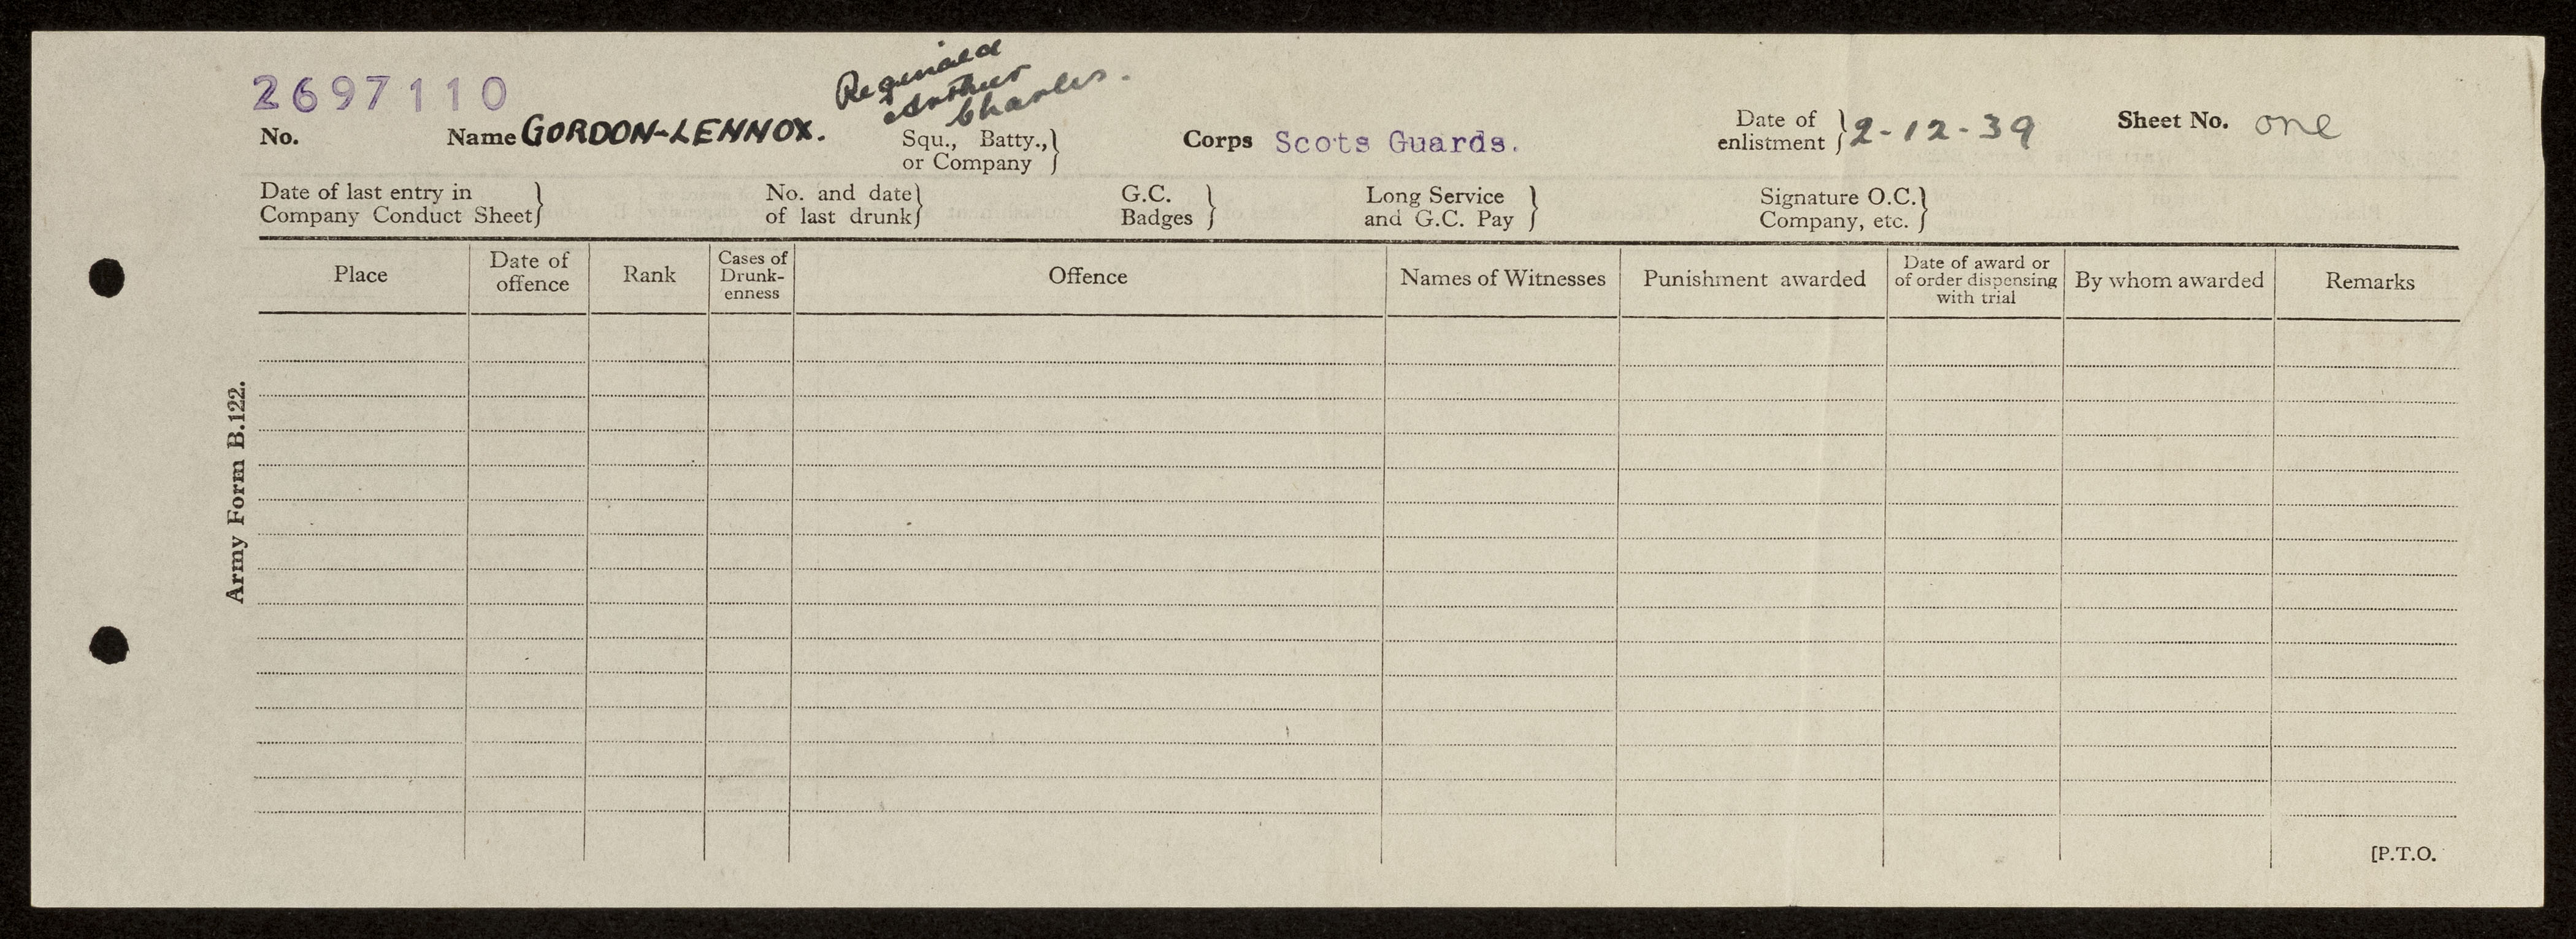 2697110
No. Name GORDON-LENNOX. Reginald Arthur Charles.
Squ., Batty., or Company } Corps Scots Guards. Date of enlistment } 2-12-39 Sheet No. one
Date of last entry in Company Conduct Sheet } No. and date of last drunk } G.C. Badges } Long Service and G.C. Pay } Signature O.C. Company, etc. }
Place Date of offence Rank Cases of Drunk-enness Offence Names of Witnesses Punishment awarded Date of award or of order dispensing with trial By whom awarded Remarks
Army Form B.122.
[P.T.O.